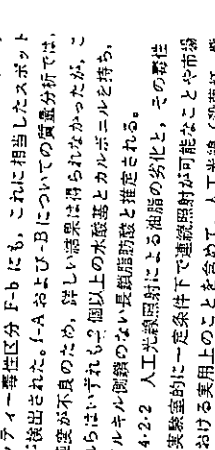 ティー毒性区分 F-b にも, これに相当したスポット
検出された。f-A および -B についての質量分析では,
度が不良のため, 詳しい結果は得られなかったが, こ
らはいずれも 2 個以上の水酸基とカルボニルを持ち,
ルキル側鎖のない長鎖脂肪酸と推定される。
4・2・2 人工光線照射による油脂の劣化と, その毒性
実験室的に一定条件下で連続照射が可能なことや市場
おける実用上のことを含めて, 人工光線